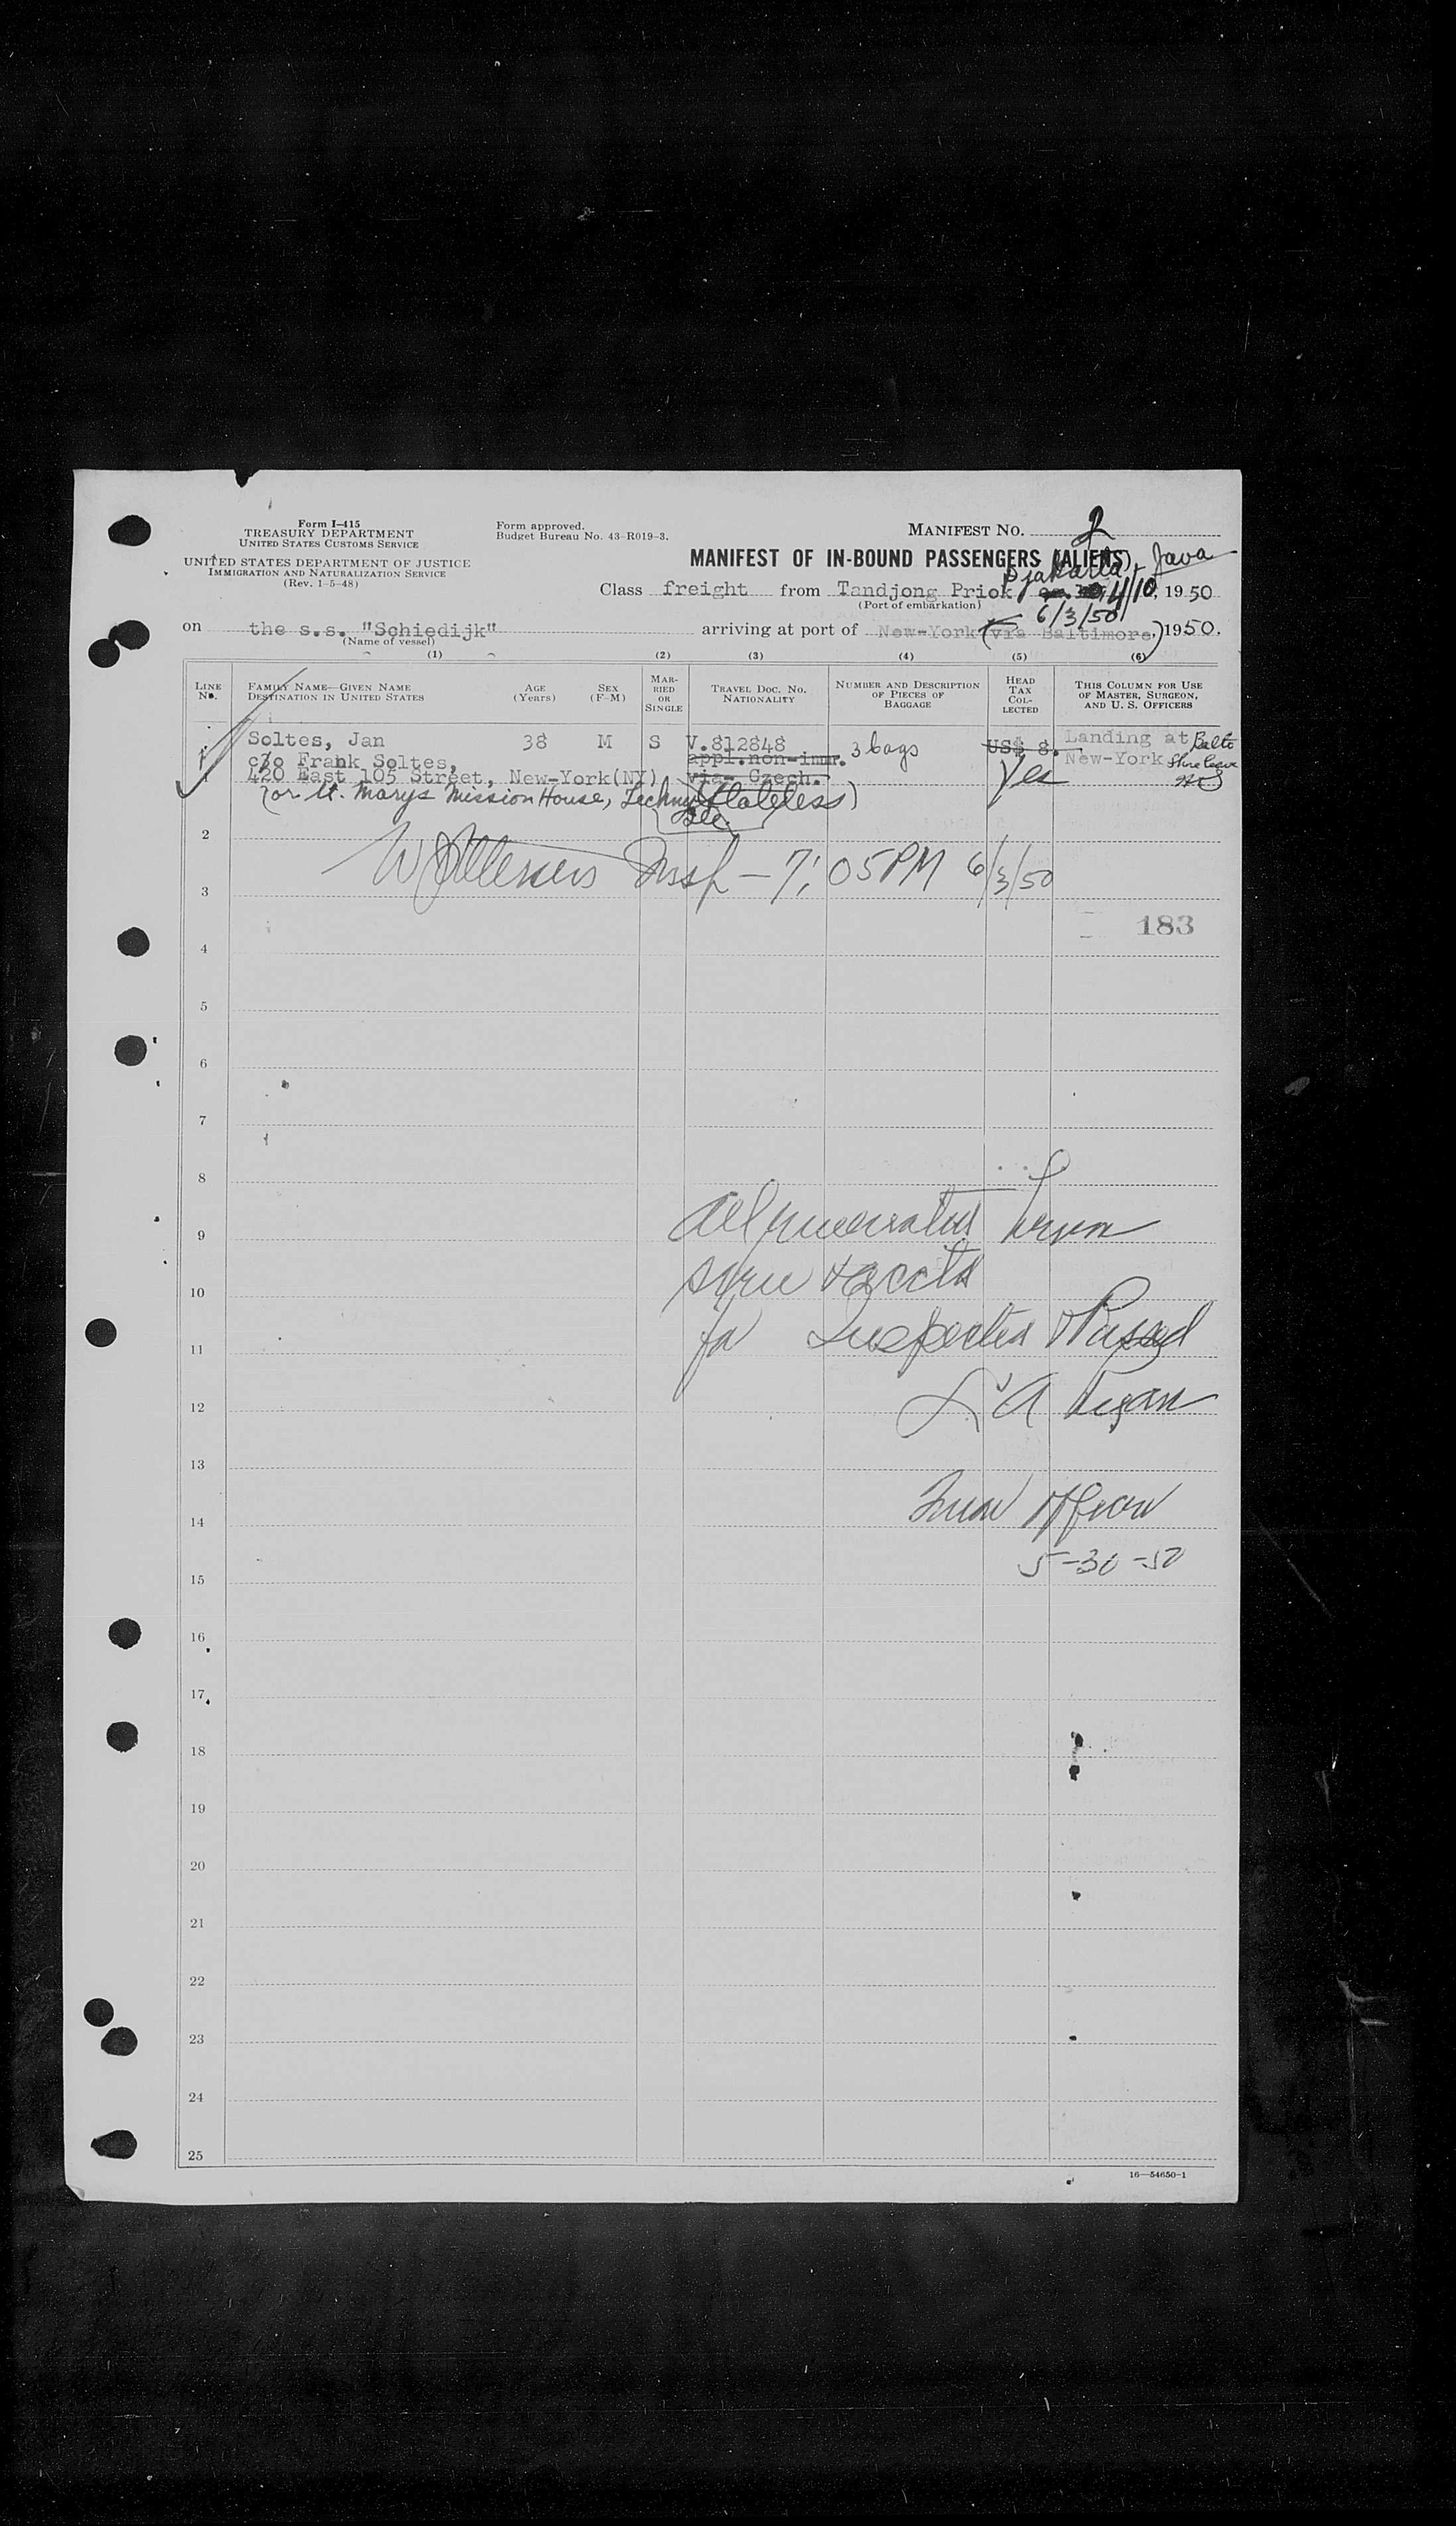 Form I-415
TREASURY DEPARTMENT
UNITED STATES CUSTOMS SERVICE
UNITED STATES DEPARTMENT OF JUSTICE
IMMIGRATION AND NATURALIZATION SERVICE
(Rev. 1-5-48)
Form approved.
Budget Bureau No. 43-R019-3.
MANIFEST NO. 2
MANIFEST OF IN-BOUND PASSENGERS (ALIENS)
Djakarta, Java
Class freight from Tandjong Priok 4/10, 1950
(Port of embarkation)
6/3/50
on the s.s. "Schiedijk" arriving at port of New-York (via Baltimore,) 1950.
(Name of vessel)
(1) (2) (3) (4) (5) (6)
LINE No. FAMILY NAME—GIVEN NAME DESTINATION IN UNITED STATES AGE (Years) SEX (F-M) MARRIED OR SINGLE TRAVEL DOC. NO. NATIONALITY NUMBER AND DESCRIPTION OF PIECES OF BAGGAGE HEAD TAX COLLECTED THIS COLUMN FOR USE OF MASTER, SURGEON, AND U. S. OFFICERS
1 Soltes, Jan 38 M S V.812848 3 bags US$ 8. Landing at Balto
c/o Frank Soltes, appl.non-imm. Yes New-York
420 East 105 Street, New-York(NY) via- Czech.
(or St. Marys Mission House, Techny Ill. (Stateless)
2
Insp — 7:05 PM 6/3/50
3
183
4
5
6
7
8
9
10
11 Inspected & Passed
12
13
14
5-30-50
15
16
17
18
19
20
21
22
23
24
25
16—54650-1